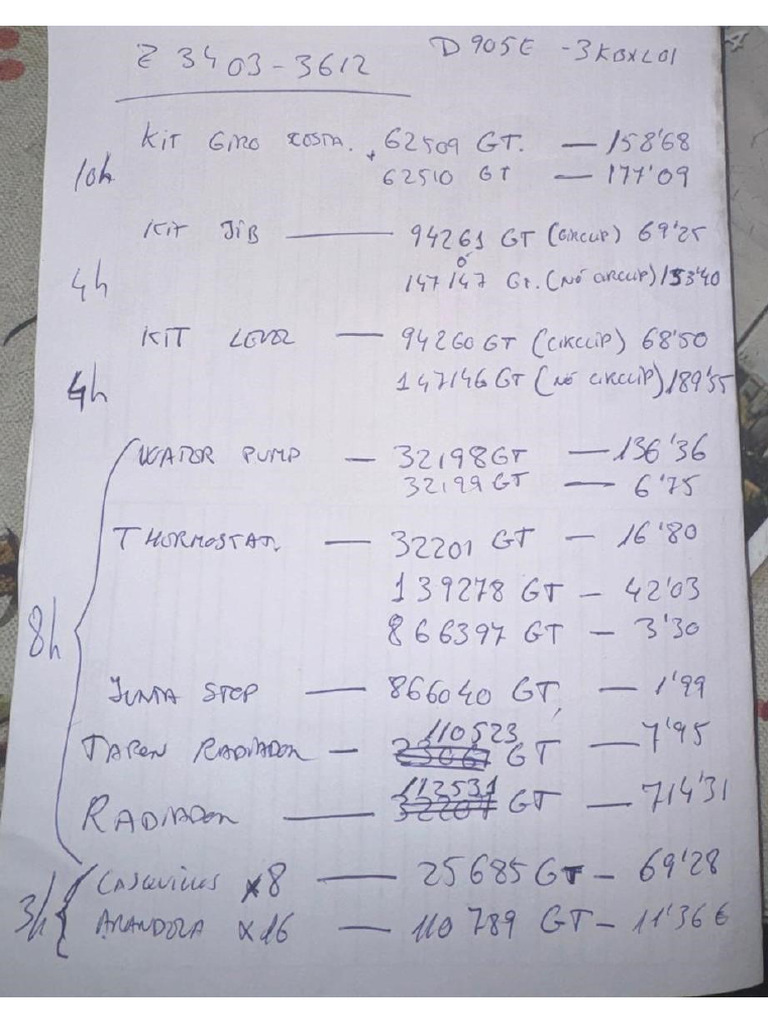 Z 3403-3612 D905E -3KBXL01
KIT GIRO COSTA. + 62509 GT. — 158'68
10h 62510 GT — 177'09
KIT JIB — 94261 GT (CIRCLIP) 69'25
ó
4h 147147 GT. (NO CIRCLIP) 153'40
KIT LEVEL — 94260 GT (CIRCLIP) 68'50
4h 147146 GT (NO CIRCLIP) 189'55
WATER PUMP — 32198 GT — 136'36
32199 GT — 6'75
THERMOSTAT. — 32201 GT — 16'80
139278 GT — 42'03
8h 866397 GT — 3'30
JUNTA STOP — 866040 GT, — 1'99
TAPON RADIADOR — 110523 GT — 7'95
RADIADOR — 112531 GT — 714'31
3h CASQUILLOS x8 — 25685 GT — 69'28
ARANDELA x16 — 110789 GT — 11'36€